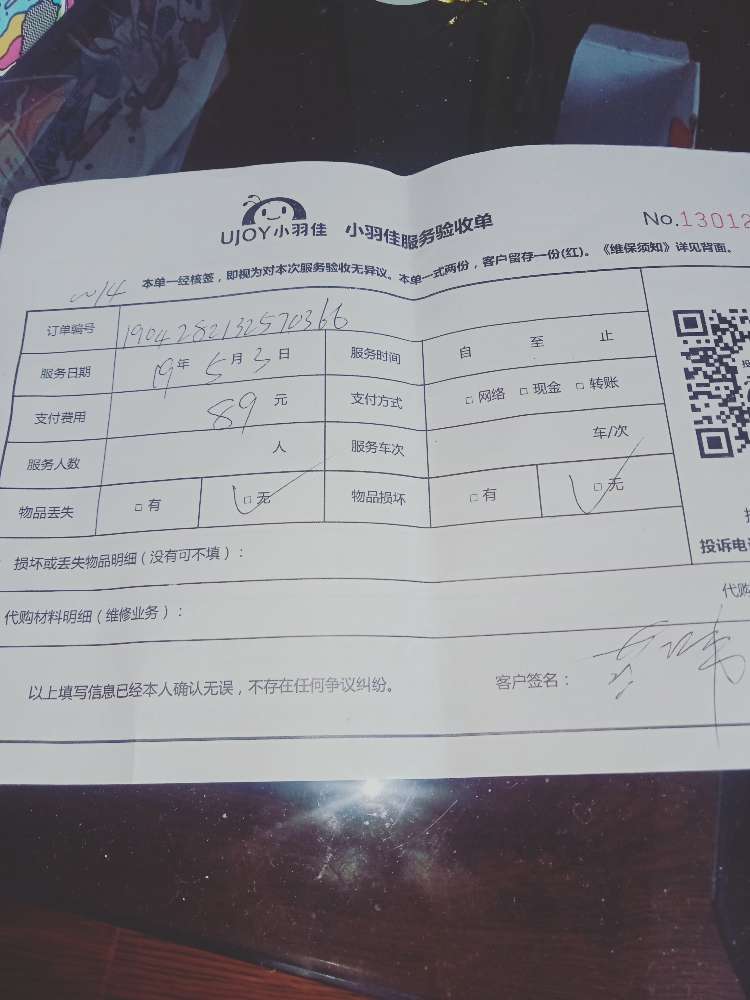 UJOY小羽佳 小羽佳服务验收单
No.13012
本单一经核签，即视为对本次服务验收无异议。本单一式两份，客户留存一份(红)。《维保须知》详见背面。
订单编号 1904282132570366
服务日期 19年 5月 3日 服务时间 自 至 止
支付费用 89 元 支付方式 □ 网络 □ 现金 □ 转账
服务人数 人 服务车次 车/次
物品丢失 □ 有 □ 无 物品损坏 □ 有 □ 无
投诉电
损坏或丢失物品明细（没有可不填）：
代购材料明细（维修业务）：
代购
以上填写信息已经本人确认无误，不存在任何争议纠纷。 客户签名：